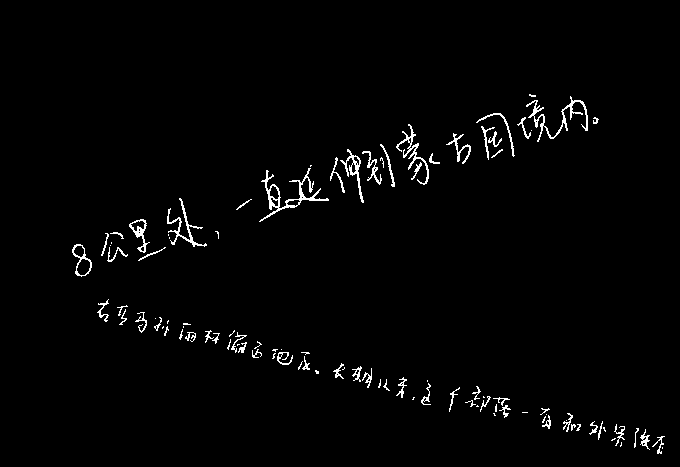 8公里处，一直延伸到蒙古国境内。
在亚马孙雨林偏远地区。长期以来，这个部落一直和外界隔